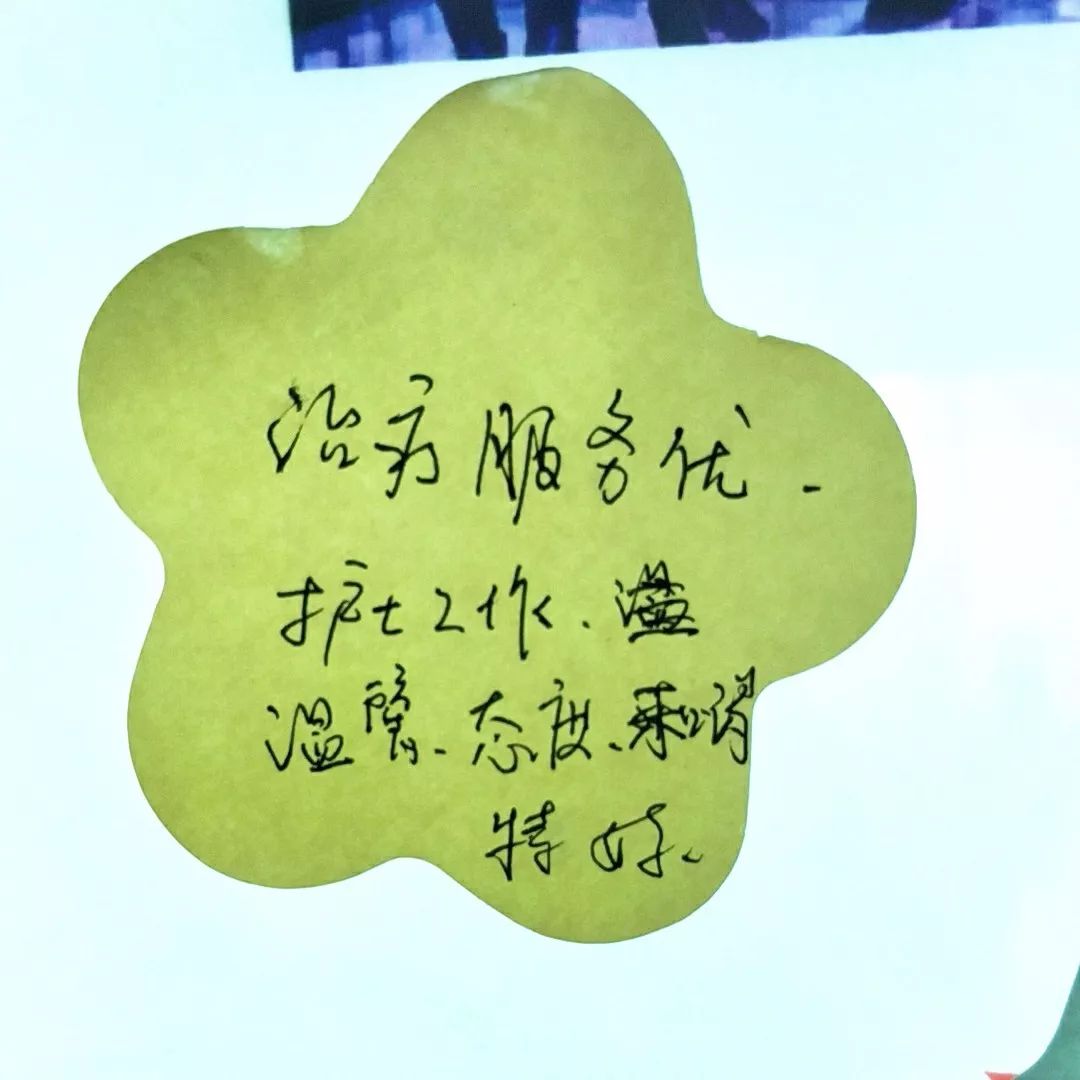 治疗服务优.
护士工作、温
温馨、态度、
特好、